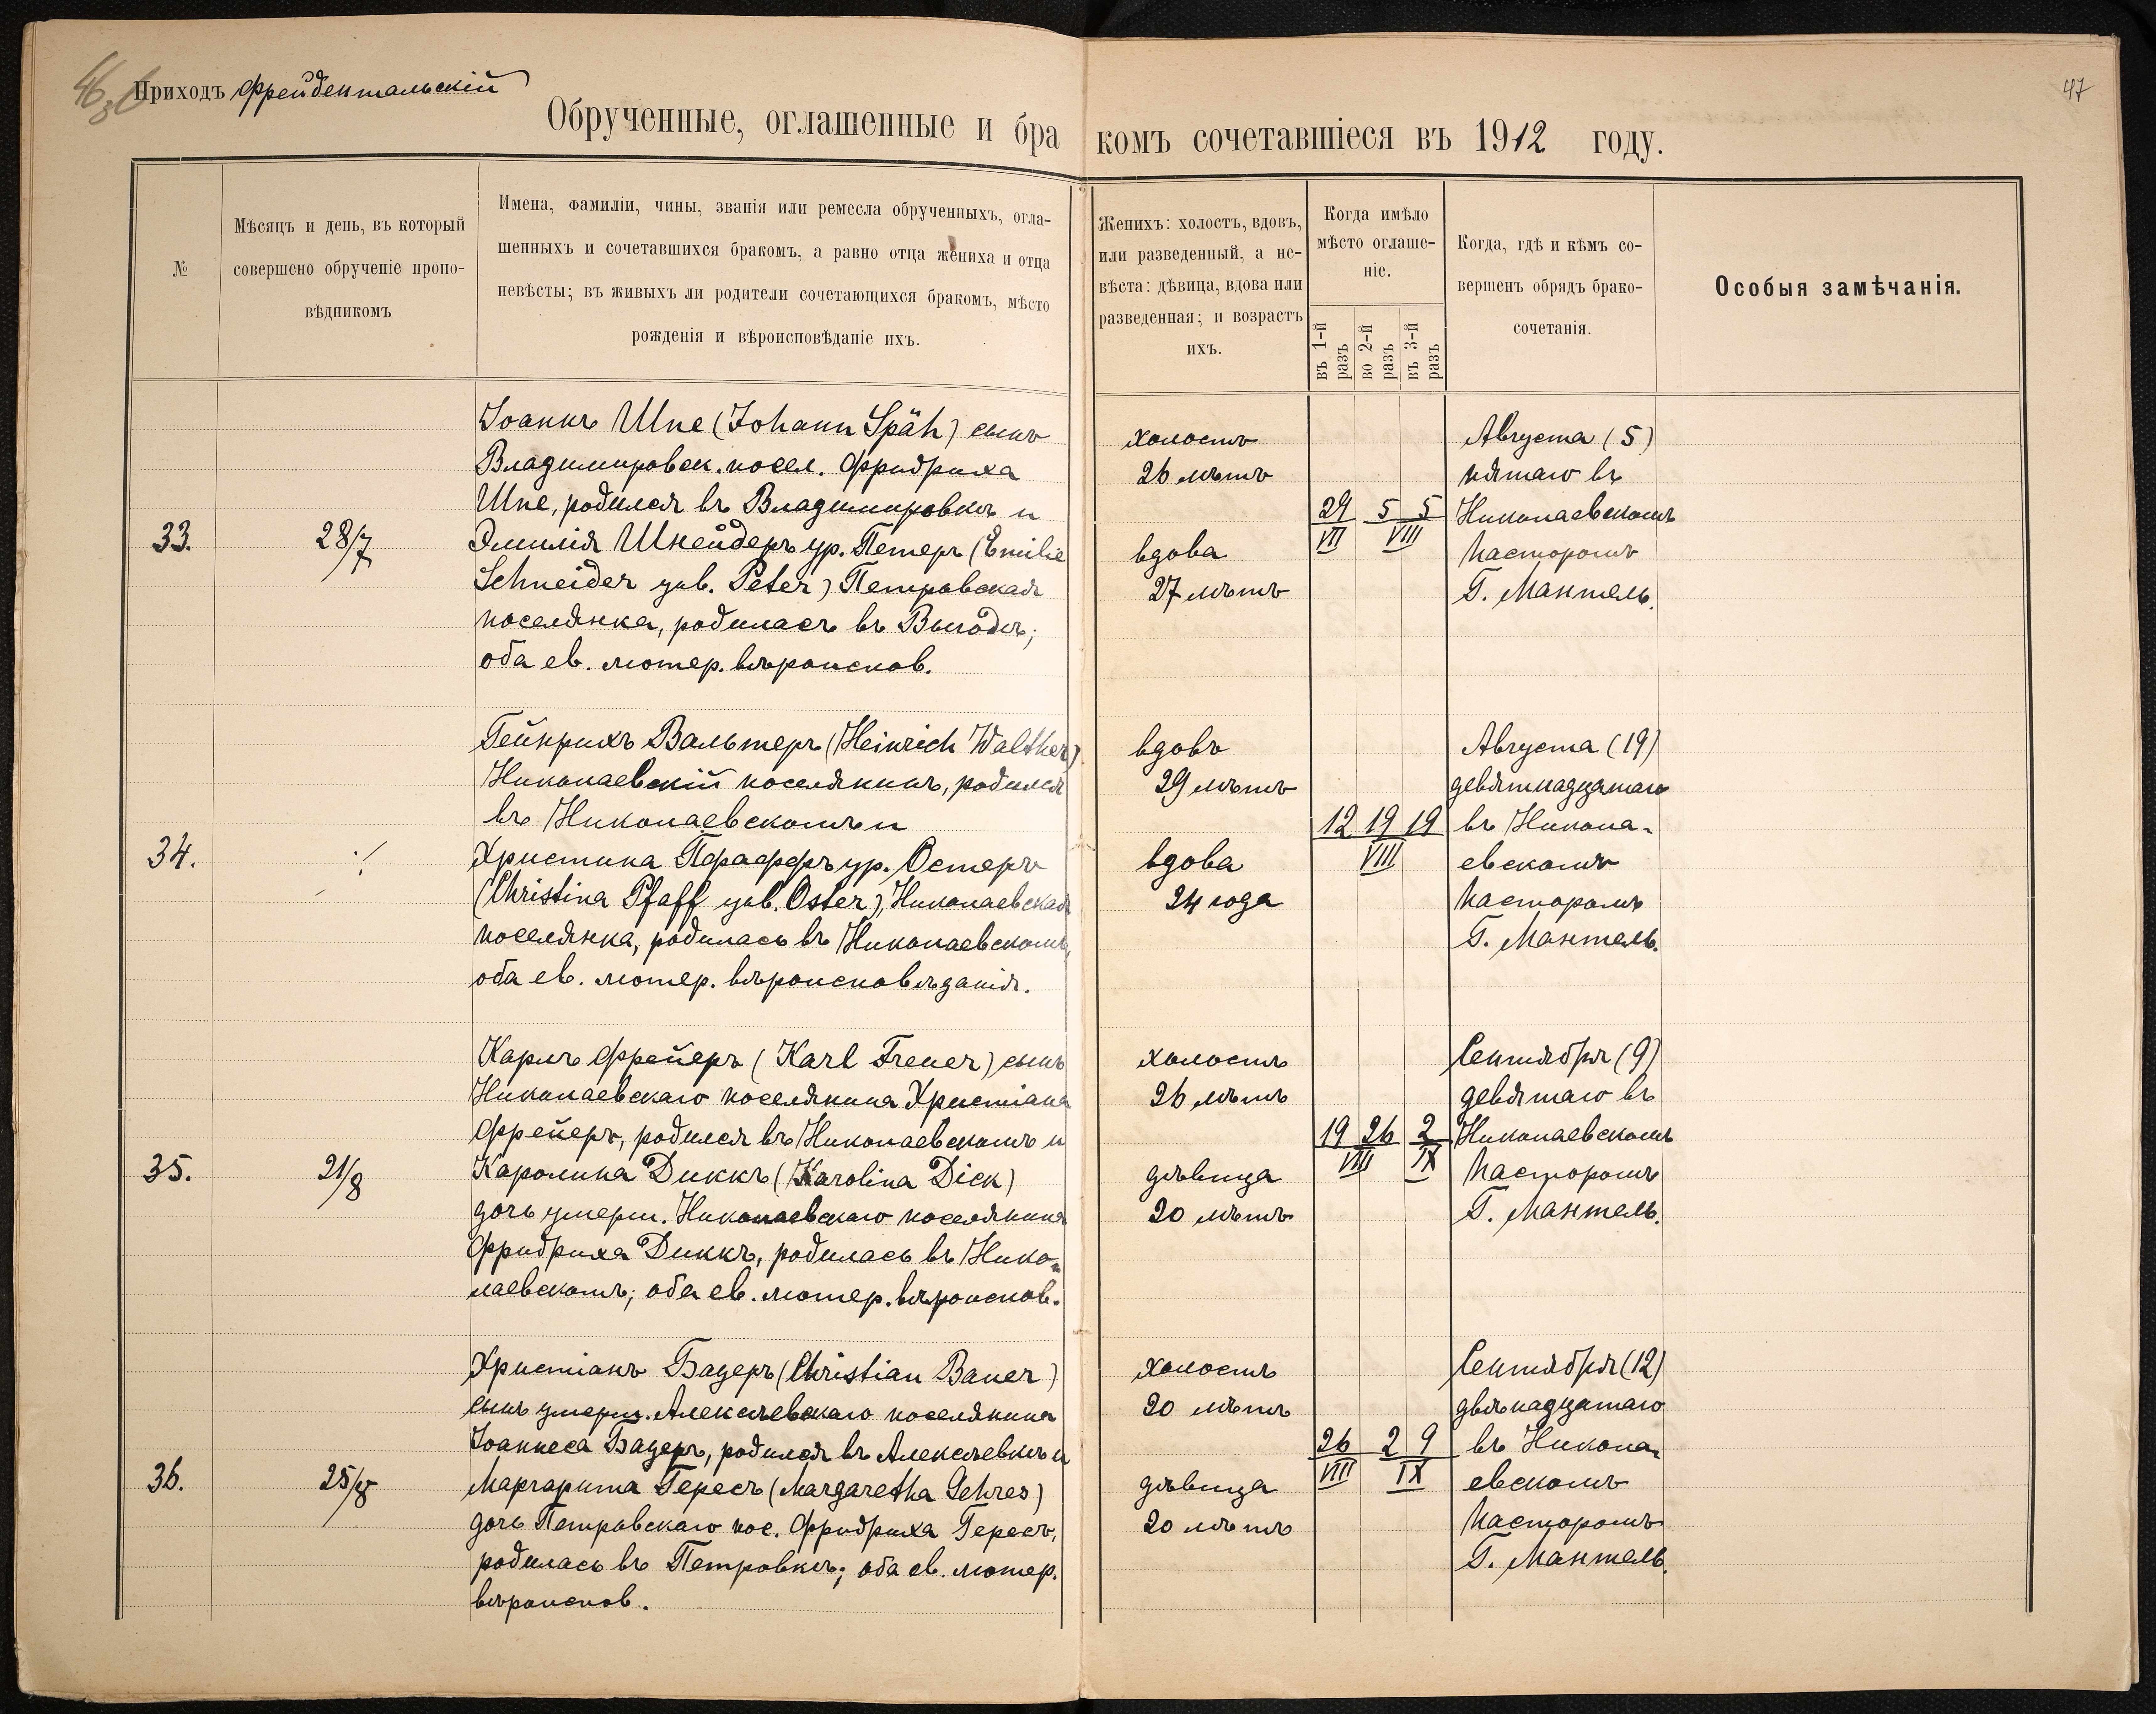 46об
Приходъ Фрейдентальскій
47
Обрученные, оглашенные и бра комъ сочетавшіеся въ 1912 году.
№
Мѣсяцъ и день, въ который
совершено обрученіе пропо-
вѣдникомъ
Имена, фамиліи, чины, званія или ремесла обрученныхъ, огла-
шенныхъ и сочетавшихся бракомъ, а равно отца жениха и отца
невѣсты; въ живыхъ ли родители сочетающихся бракомъ, мѣсто
рожденія и вѣроисповѣданіе ихъ.
Женихъ: холостъ, вдовъ,
или разведенный, а не-
вѣста: дѣвица, вдова или
разведенная; и возрастъ
ихъ.
Когда имѣло
мѣсто оглаше-
ніе.
въ 1-й
разъ
во 2-й
разъ
въ 3-й
разъ
Когда, гдѣ и кѣмъ со-
вершенъ обрядъ брако-
сочетанія.
Особыя замѣчанія.
33.
28/7
Іоаннъ Шпе (Johann Späh) сынъ
Владимировск. посел. Фридриха
Шпе, родился въ Владимировкѣ и
Эмилія Шнейдеръ ур. Петеръ (Emilie
Schneider geb. Peter) Петровская
поселянка, родилась въ Выгодѣ;
оба ев. лютер. вѣроиспов.
холостъ
26 лѣтъ
вдова
27 лѣтъ
29 5 5
VII VIII
Августа (5)
пятаго въ
Николаевскомъ
пасторомъ
Г. Мантель.
34.
·/.
Гейнрихъ Вальтеръ (Heinrich Walther)
Николаевскій поселянинъ, родился
въ Николаевскомъ и
Христина Пфаффъ ур. Остеръ
(Christina Pfaff geb. Oster), Николаевская
поселянка, родилась въ Николаевскомъ,
оба ев. лютер. вѣроисповѣданія.
вдовъ
29 лѣтъ
вдова
24 года
12 19 19
VIII
Августа (19)
девятнадцатаго
въ Никола-
евскомъ
пасторомъ
Г. Мантель.
35.
21/8
Карлъ Фрейеръ (Karl Freuer) сынъ
Николаевскаго поселянина Христіана
Фрейеръ, родился въ Николаевскомъ и
Каролина Диккъ (Karolina Dick)
дочь умерш. Николаевскаго поселянина
Фридриха Диккъ, родилась въ Нико-
лаевскомъ; оба ев. лютер. вѣроиспов.
холостъ
26 лѣтъ
дѣвица
20 лѣтъ
19 26 2
VIII IX
Сентября (9)
девятаго въ
Николаевскомъ
пасторомъ
Г. Мантель.
36.
25/8
Христіанъ Бауеръ (Christian Bauer)
сынъ умерш. Алексѣевскаго поселянина
Іоаннеса Бауеръ, родился въ Алексѣевкѣ и
Маргарита Гересъ (Margaretha Gehres)
дочь Петровскаго пос. Фридриха Гересъ,
родилась въ Петровкѣ; оба ев. лютер.
вѣроиспов.
холостъ
20 лѣтъ
дѣвица
20 лѣтъ
26 2 9
VIII IX
Сентября (12)
двѣнадцатаго
въ Никола-
евскомъ
пасторомъ
Г. Мантель.